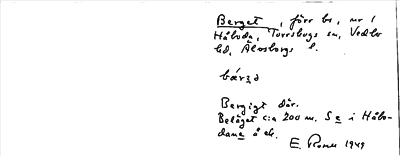 Berget, förr be, nr 1
Håboda, Torrskogs sn, Vedbo
hd, Älvsborgs l.
bárʒə
Bergigt där.
Beläget c:a 200 m. S e i Håbo-
dane å ek.
E. 1949